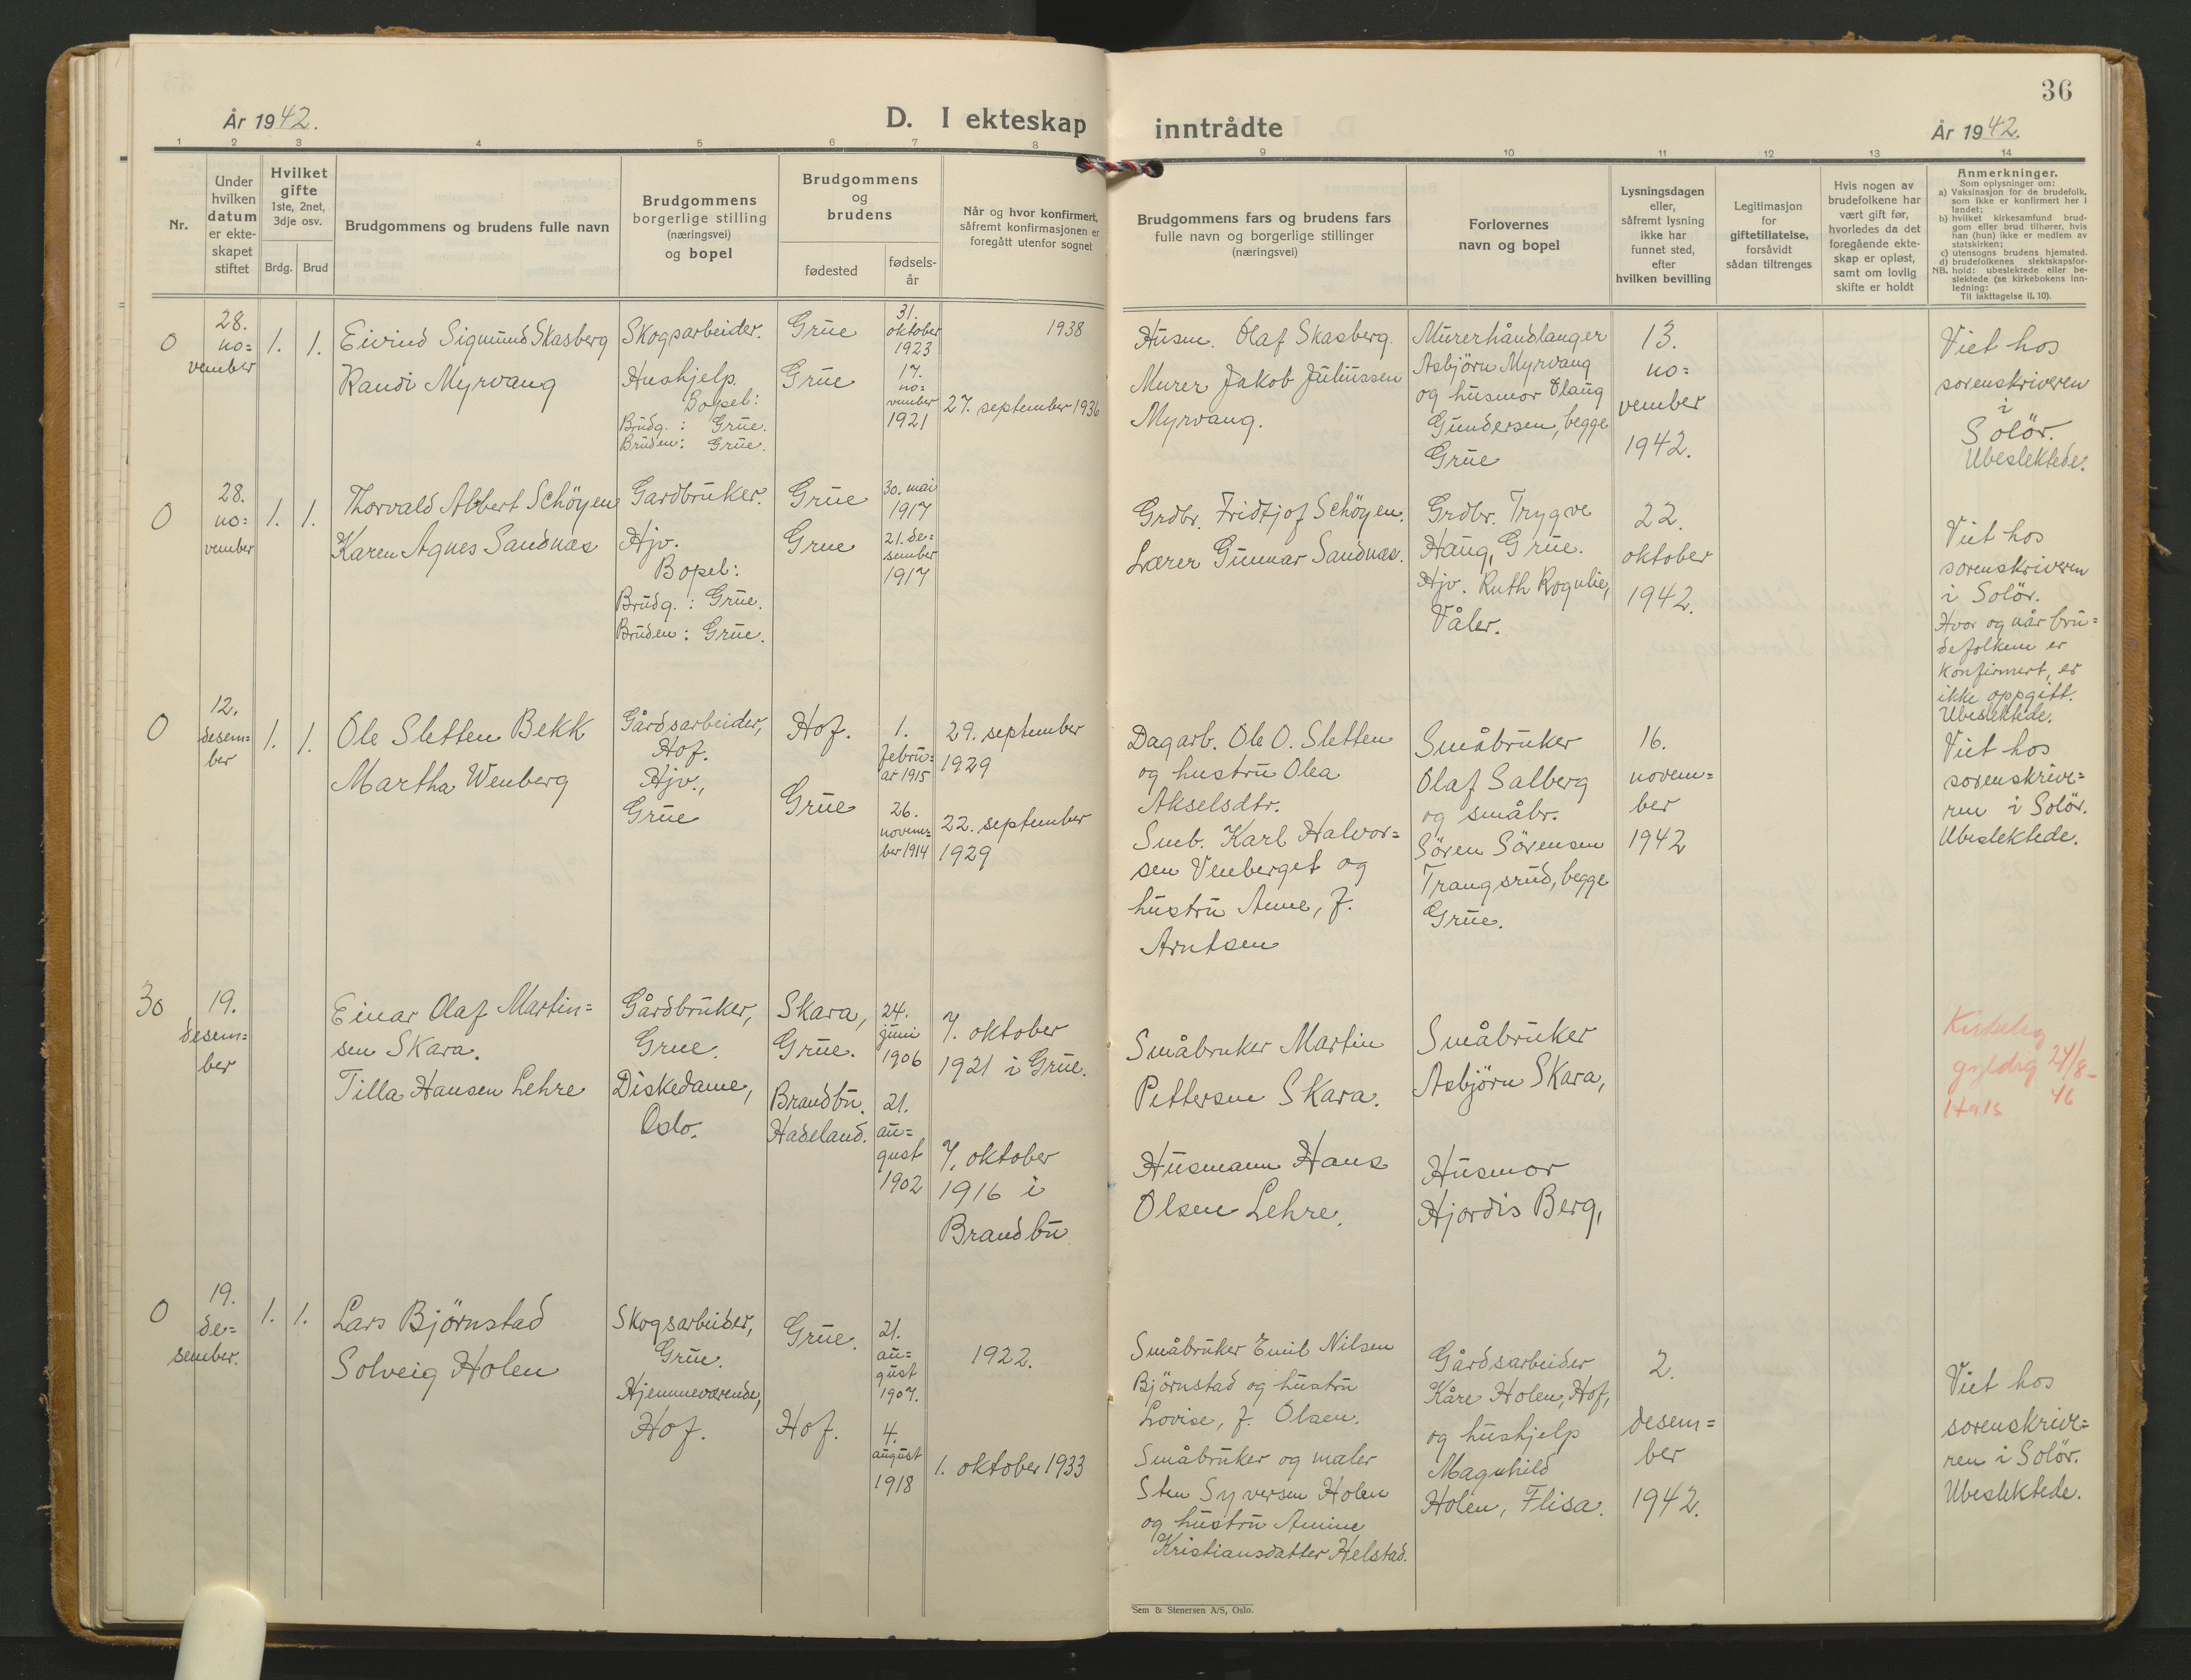 36
År 1942.
D. I ekteskap inntrådte
År 1942.
1 2 3 4 5 6 7 8 9 10 11 12 13 14
Nr.
Under
hvilken
datum
er ekte-
skapet
stiftet
Hvilket
gifte
1ste, 2net,
3dje osv.
Brdg. Brud
Brudgommens og brudens fulle navn
Brudgommens
borgerlige stilling
(næringsvei)
og bopel
Brudgommens
og
brudens
fødested
fødsels-
år
Når og hvor konfirmert,
såfremt konfirmasjonen er
foregått utenfor sognet
Brudgommens fars og brudens fars
fulle navn og borgerlige stillinger
(næringsvei)
Forlovernes
navn og bopel
Lysningsdagen
eller,
såfremt lysning
ikke har
funnet sted,
efter
hvilken bevilling
Legitimasjon
for
giftetillatelse,
forsåvidt
sådan tiltrenges
Hvis nogen av
brudefolkene har
vært gift før,
hvorledes da det
foregående ekte-
skap er opløst,
samt om lovlig
skifte er holdt
Anmerkninger.
Som oplysninger om:
a) Vaksinasjon for de brudefolk,
som ikke er konfirmert her i
landet;
b) hvilket kirkesamfund brud-
gom eller brud tilhører, hvis
han (hun) ikke er medlem av
statskirken;
c) utensogns brudens hjemsted.
d) brudefolkenes slektskapsfor-
NB. hold: ubeslektede eller be-
slektede (se kirkebokens inn-
ledning:
Til iakttagelse II, 10).
0
28.
no=
vember
1. 1.
Eivind Sigmund Skasberg
Randi Myrvang
Skogsarbeider.
Hushjelp.
Bopel:
Brudg. : Grue.
Bruden: Grue.
Grue
Grue
31.
oktober
1923
17.
no=
vember
1921
1938
27. september 1936
Husm. Olaf Skasberg.
Murer Jakob Juliussen
Myrvang.
Murerhåndlanger
Asbjörn Myrvang
og husmor Olaug
Gundersen, begge
Grue
13.
no=
vember
1942.
Viet hos
sorenskriveren
i
Solör.
Ubeslektede.
0
28.
no=
vember
1. 1.
Thorvald Albert Schöyen
Karen Agnes Sandnas
Gardbruker.
Hjv.
Bopel:
Brudg. : Grue.
Bruden : Grue.
Grue
Grue
30. mai
1917
21. de=
sember
1917
Grdbr. Fridtjof Schöyen.
Lærer Gunnar Sandnas.
Grdbr. Trygve
Haug, Grue.
Hjv. Ruth Rognlie,
Våler.
22.
oktober
1942.
Viet hos
sorenskriveren
i Solör.
Hvor og når bru=
defolkene er
konfirmert, er
ikke oppgitt.
Ubeslektede.
0
12.
desem=
ber
1. 1.
Ole Sletten Bekk
Martha Wenberg
Gårdsarbeider,
Hof.
Hjv.,
Grue
Hof.
Grue
1.
febru=
ar 1915
26.
novem=
ber 1914
29. september
1929
22. september
1929
Dagarb. Ole O. Sletten
og hustru Olea
Akselsdtr.
Smb. Karl Halvor=
sen Venberget og
hustru Anne, f.
Arntsen
Småbruker
Olaf Salberg
og småbr.
Sören Sörensen
Trangsrud, begge
Grue.
16.
novem=
ber
1942
Viet hos
sorenskrive=
ren i Solör.
Ubeslektede.
30
19.
desem=
ber
Einar Olaf Martin=
sen Skara.
Tilla Hansen Lehre
Gårdbruker,
Grue.
Diskedame,
Oslo.
Skara,
Grue.
Brandbu.
Hadeland.
24.
juni
1906
21.
au=
gust
1902
7. oktober
1921 i Grue.
7. oktober
1916 i
Brandbu
Småbruker Martin
Pettersen Skara.
Husmann Hans
Olsen Lehre.
Småbruker
Asbjörn Skara,
Husmor
Hjordis Berg,
Kirkelig
gyldig 24/8-
46
0
19.
de=
sember.
1. 1.
Lars Björnstad
Solveig Holen
Skogsarbeider,
Grue.
Hjemmeværende,
Hof.
Grue.
Hof.
21.
au=
gust
1907.
4.
august
1918
1922.
1. oktober 1933
Småbruker Emil Nilsen
Björnstad og hustru
Lovise, f. Olsen.
Småbruker og maler
Sten Syversen Holen
og hustru Amine
Kristiansdatter Helstad.
Gårdsarbeider
Kåre Holen, Hof,
og hushjelp
Magnhild
Holen, Flisa.
2.
desem=
ber
1942.
Viet hos
sorenskrive=
ren i Solör.
Ubeslektede.
Sem & Stenersen A/S, Oslo.